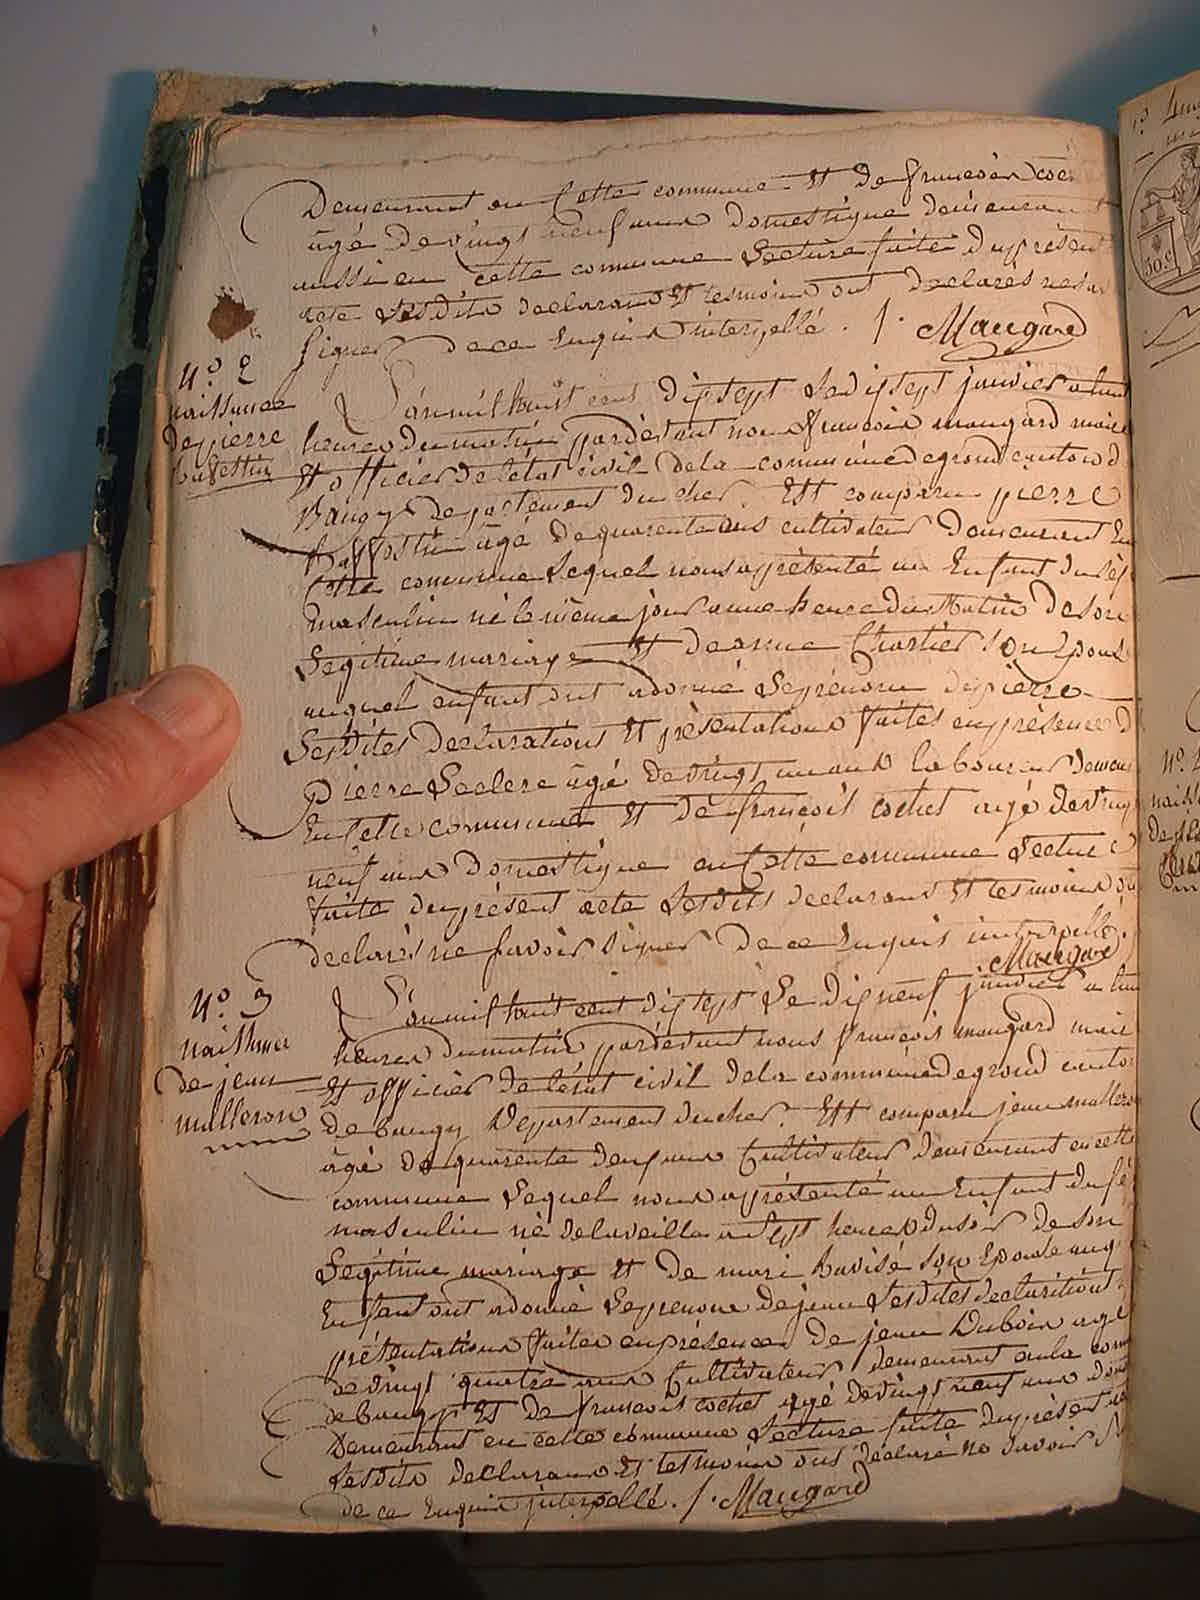 Demeurant en Cette commune Et de françois coc
âgé de vingt neuf ans domestique demeurant
aussi en cette commune Lecture faite du présent
acte Lesdits declarans Et tesmoins ont declarés ne sav
Signer de ce Enquis interpellé. /. Maugard
N.º 2
naissance
de pierre
L'an mil huit cent dix sept Le dix sept janvier a huit
heures du matin pardevant nous françois maugard maire
Et officier de l'état civil de la commune de grond canton d
Baugy departement du cher. Est comparu pierre
âgé de quarente ans cultivateur Demeurant En
Cette commune Lequel nous a présenté un Enfant du séx
masculin né le même jour a une heure du Matin de son
Legitime mariage Et de anne Chartier son Epouse
auquel enfant ont a donné Le prénom de pierre
Lesdites declarations Et présentations faites en présence d
Pierre Leclerc âgé de vingt un ans laboureur demeu
En Cette commune Et de françois cochet agé de vingt
neuf ans Domestique en Cette commune Lecture
faite du présent acte Lesdits declarans Et tesmoins on
declarés ne savoir signer de ce Enquis interpellé.
Maugard
N.º 3
naissance
de jean
milleron
L'an mil huit cent dix sept Le dix neuf janvier a huit
heures du matin pardevant nous françois maugard mair
Et officier de l'état civil de la commune de grond canto
de baugy Departement du cher. Est comparu jean mallero
âgé de quarente deux ans Cultivateur demeurant en cette
commune Lequel nous a présenté un Enfant du sé
masculin né de la veille a sept heures du soir de son
Legitime mariage Et de mari son Epouse auq
Enfant ont a donné Le prenom de jean Lesdites declarations
présentations faites en présence de jean Dubois agé
de vingt quatre ans Cultivateur demeurant en la com
de baugy Et de françois cochet agé de vingt neuf ans dom
Demeurant en cette commune Lecture faite du présent ac
Lesdits declarans Et tesmoins ons declaré ne savoir S
de ce Enquis interpellé. /. Maugard
50.c
N.º
naiss